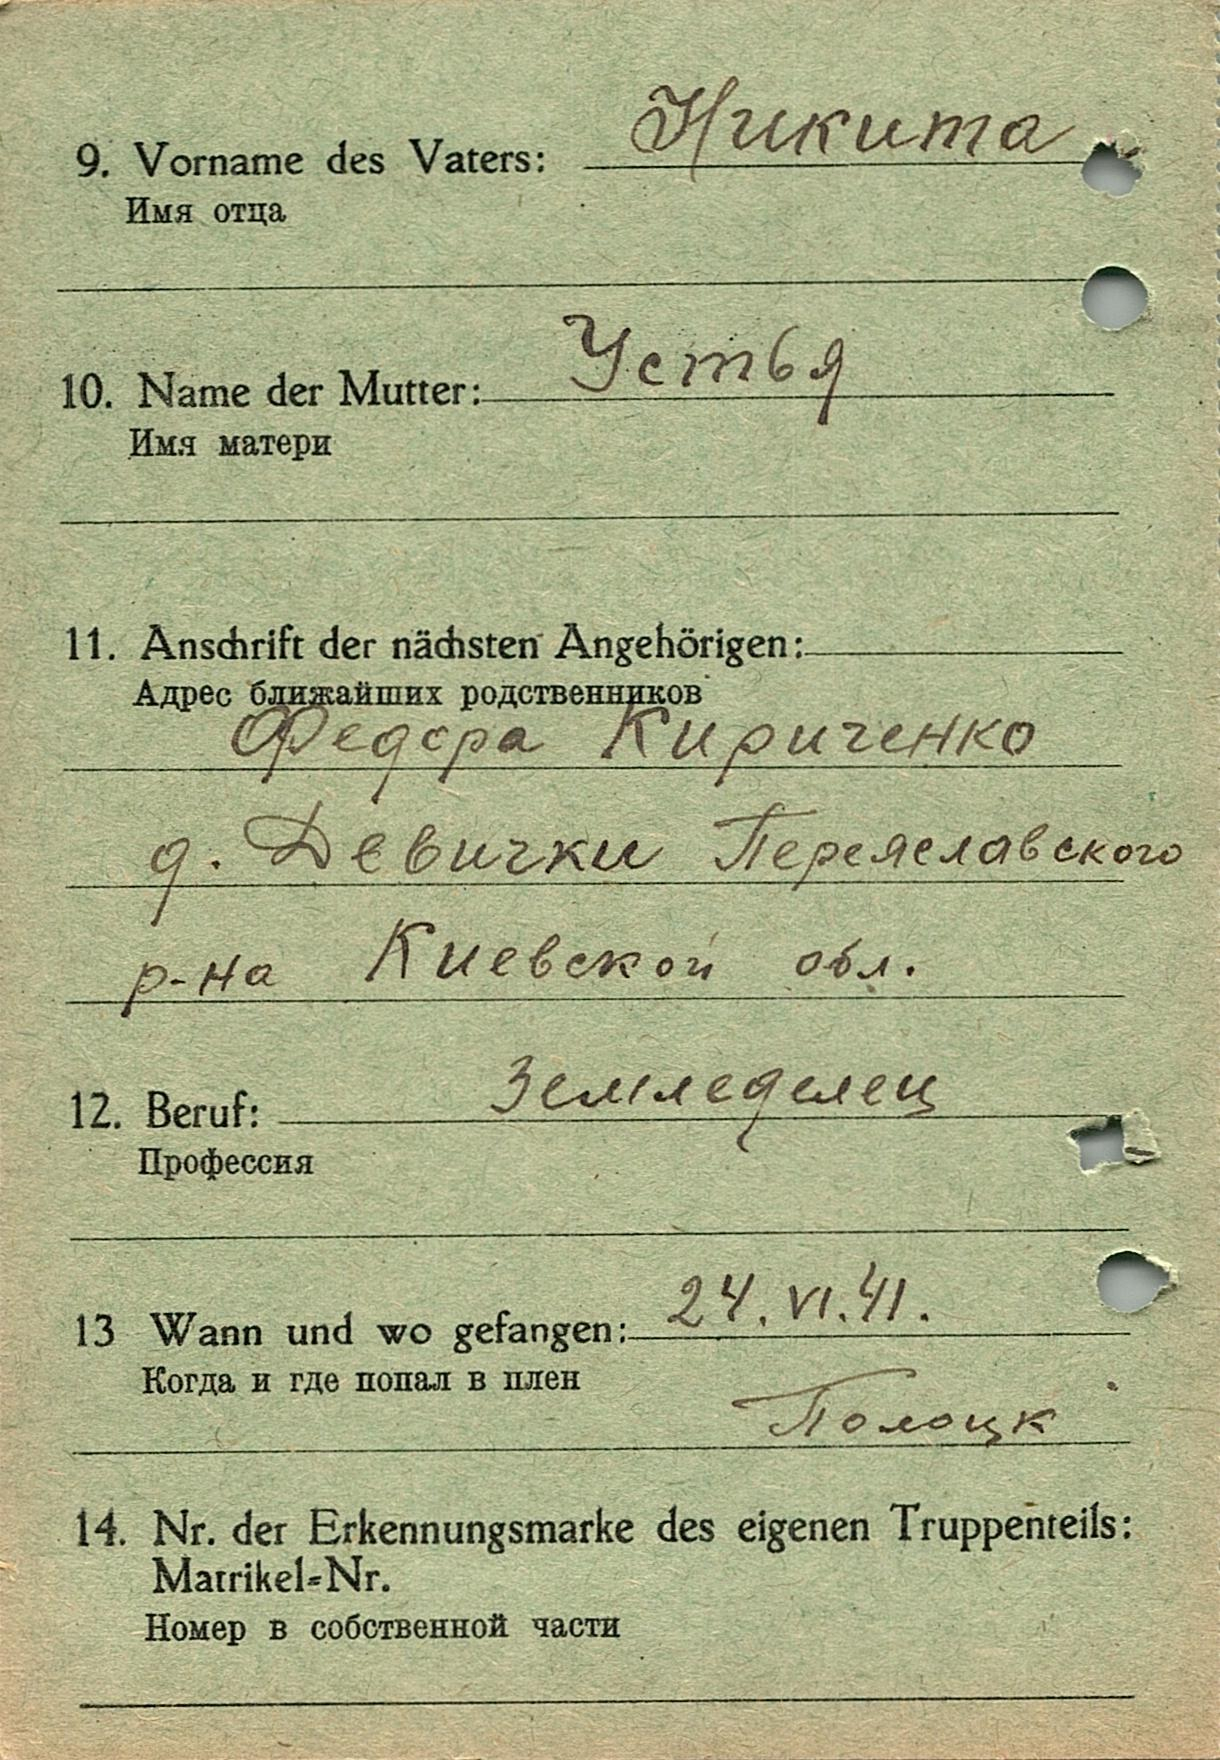 Никита
9. Vorname des Vaters:
Имя отца
Устья
10. Name der Mutter:
Имя матери
11. Anschrift der nächsten Angehörigen:
Адрес ближайших родственников
Федора Кириченко
д. Девички Переяславского
р-на Киевской обл.
12. Beruf: Земледелец
Профессия
13 Wann und wo gefangen: 24. VI. 41.
Когда и где попал в плен
Полоцк
14. Nr. der Erkennungsmarke des eigenen Truppenteils:
Matrikel-Nr.
Номер в собственной части